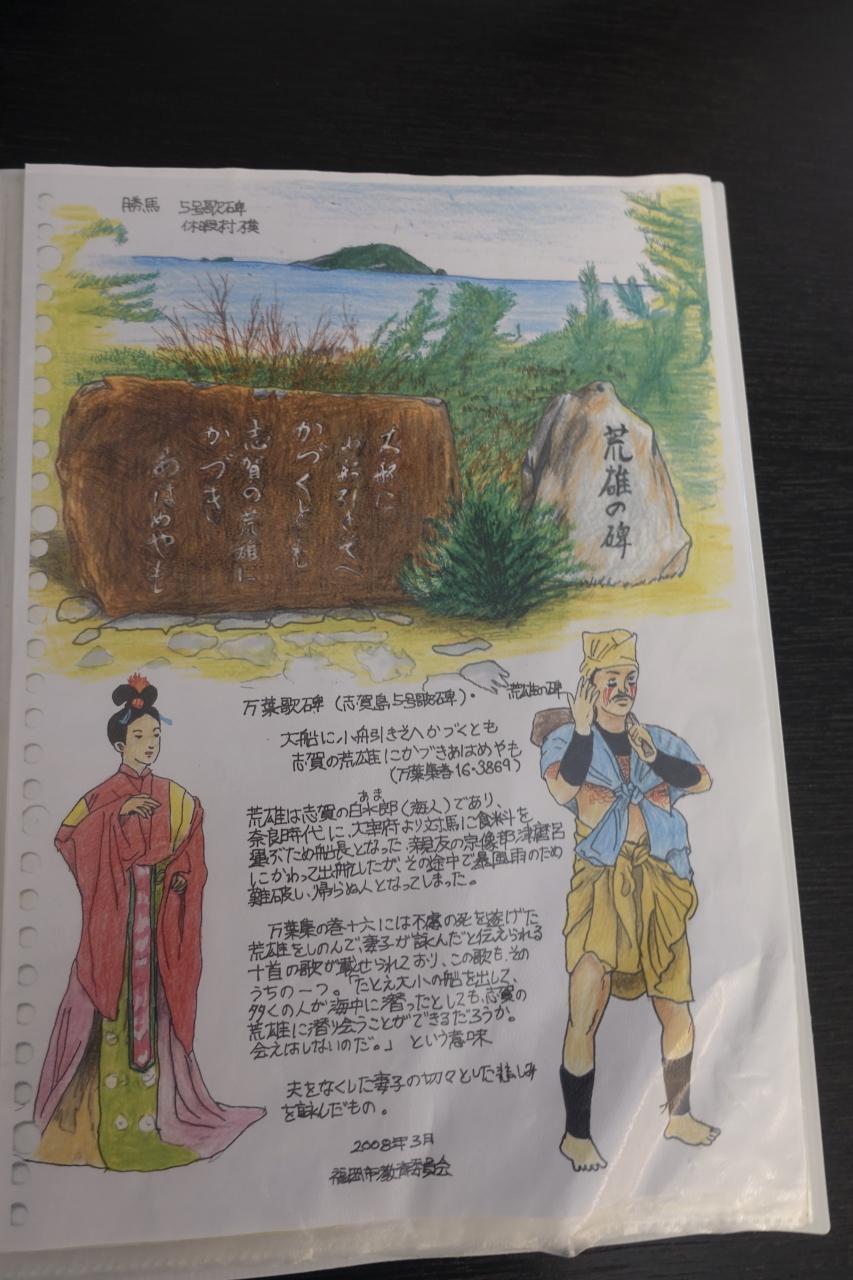 勝馬 5号歌碑
休暇村横
大船に
小船引きそへ
かづくとも
志賀の荒雄に
かづき
あはめやも
荒雄の碑
万葉歌碑（志賀島5号歌碑）・荒雄の碑
大船に小舟引きそへかづくとも
志賀の荒雄にかづきあはめやも
（万葉集巻16・3869）
荒雄は志賀の白水郎（海人）であり、
あま
奈良時代に、大宰府より対馬に食料を
運ぶため船長となった親友の宗像部津麿呂
にかわって出航したが、その途中で暴風雨のため
難破し、帰らぬ人となってしまった。
万葉集の巻十六には不慮の死を遂げた
荒雄をしのんで、妻子が詠んだと伝えられる
十首の歌が載せられており、この歌も、その
うちの一つ。「たとえ大小の船を出して、
多くの人が海中に潜ったとしても、志賀の
荒雄に潜り会うことができるだろうか。
会えはしないのだ。」という意味
夫をなくした妻子の切々とした悲しみ
を詠んだもの。
2008年3月
福岡市教育委員会